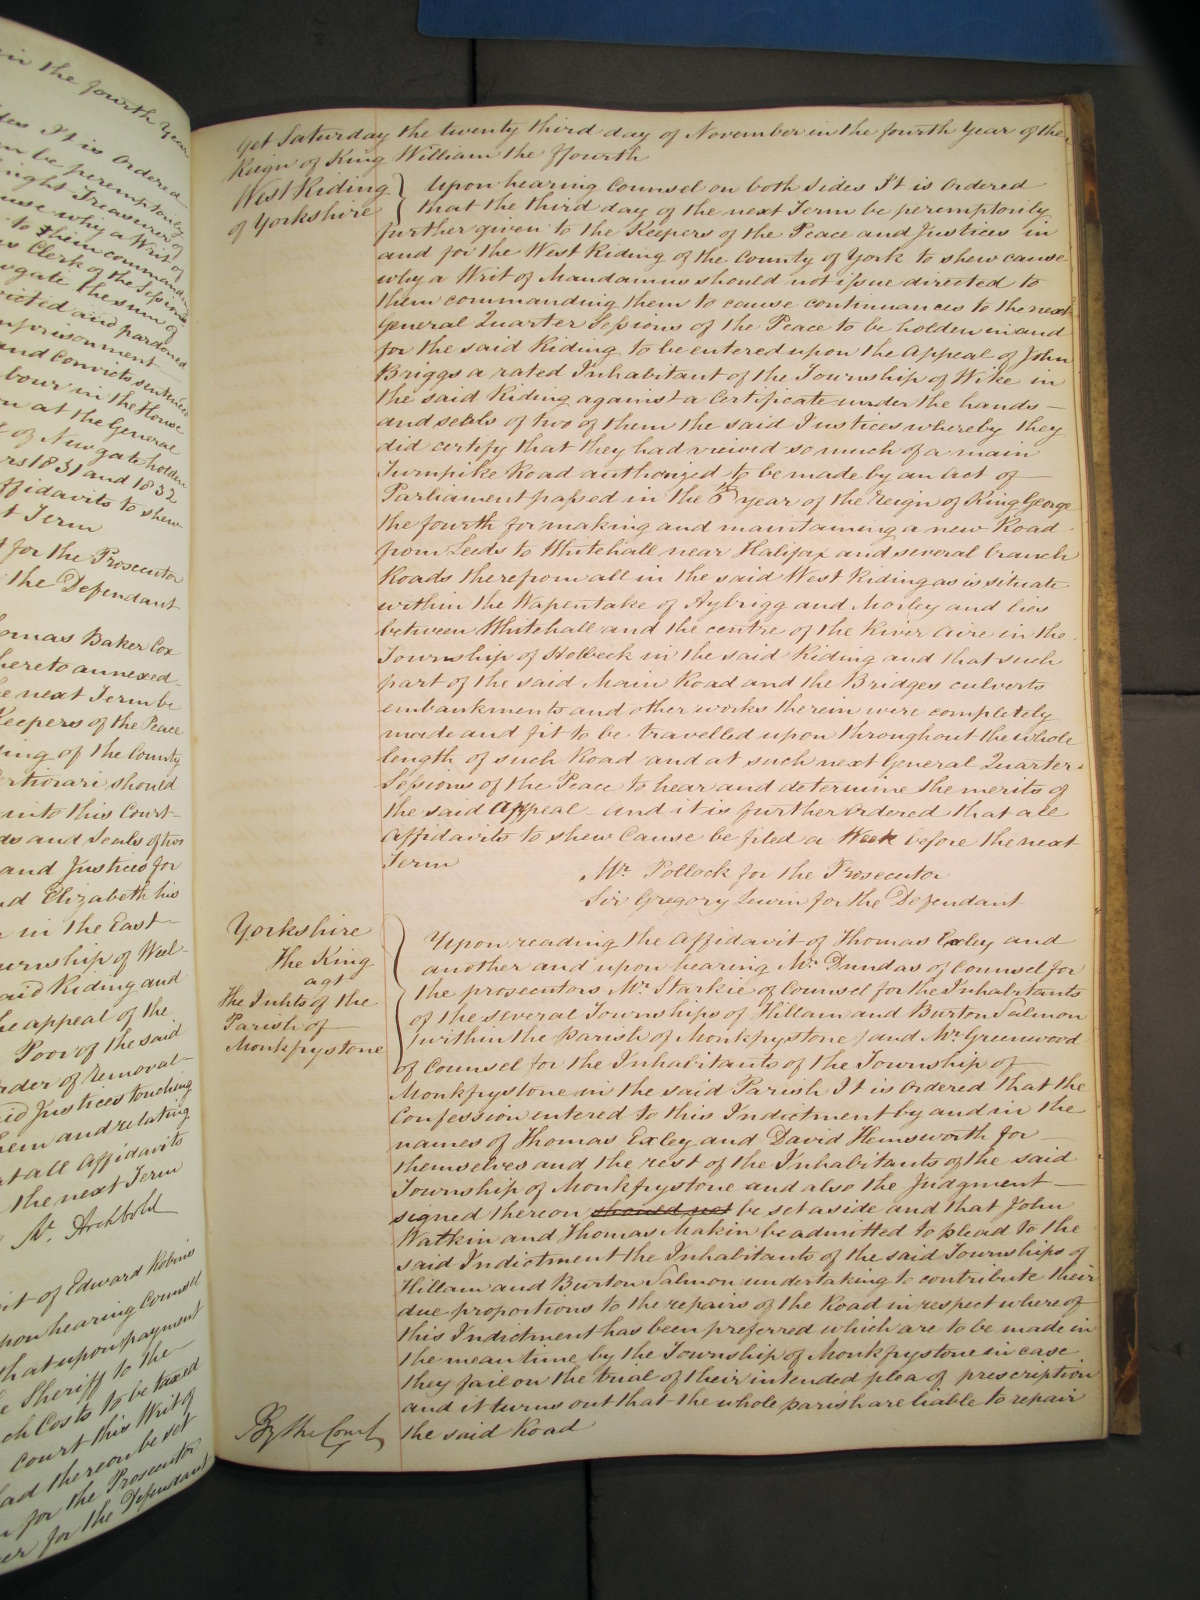 in the fourth Year
It is Ordered
be peremptorily
night Treasurer of
cause why a Writ of
to them command
Clerk of the Sessions
Newgate the sum of
convicted and pardoned
imprisonment
and Convicts sentenced
labour in the House
on at the General
of Newgate holden
1831 and 1832
Affidavits to shew
t Term
for the Prosecutor
the Defendant
Thomas Baker Cox
hereto annexed
next Term be
Keepers of the Peace
ing of the County
Certiorari should
into this Court
ds and Seals of two
and Justices for
and Elizabeth his
in the East
ownship of Wel-
said Riding and
the appeal of the
Poor of the said
rder of Removal
aid Justices touching
hem and relating
at all Affidavits
the next Term
Mr. Archbold
it of Edward Robins
upon hearing Counsel
that upon payment
Sheriff to the
ch Costs to be taxed
Court this Writ of
had thereon be set
for the Prosecutor
for the Defendant
Yet Saturday the twenty third day of November in the fourth Year of the
Reign of King William the ffourth
West Riding
of Yorkshire
Upon hearing Counsel on both sides It is Ordered
that the third day of the next Term be peremptorily
further given to the Keepers of the Peace and Justices in
and for the West Riding of the County of York to shew cause
why a Writ of Mandamus should not issue directed to
them commanding them to cause continuances to the next
General Quarter Sessions of the Peace to be holden in and
for the said Riding to be entered upon the Appeal of John
Briggs a rated Inhabitant of the Township of Wike in
the said Riding against a Certificate under the hands
and seals of two of them the said Justices whereby they
did certify that they had viewed so much of a main
Turnpike Road authorized to be made by an Act of
Parliament passed in the 6th year of the Reign of King George
the fourth for making and maintaining a new Road
from Leeds to Whitehall near Halifax and several branch
Roads therefrom all in the said West Riding as is situate
within the Wapentake of Aybrigg and Morley and lies
between Whitehall and the centre of the River Aire in the
Township of Holbeck in the said Riding and that such
part of the said Main Road and the Bridges culverts
embankments and other works therein were completely
made and fit to be travelled upon throughout the whole
length of such Road and at such next General Quarter
Sessions of the Peace to hear and determine the merits of
the said Appeal and it is further Ordered that all
Affidavits to shew Cause be filed a Week before the next
Term
Mr. Pollock for the Prosecutor
Sir Gregory Lewin for the Defendant
Yorkshire
The King
agt
The Inhts of the
Parish of
Monkfrystone
Upon reading the Affidavit of Thomas Exley and
another and upon hearing Mr. Dundas of Counsel for
the prosecutors Mr. Starkie of Counsel for the Inhabitants
of the several Townships of Hillam and Burton Salmon
(within the parish of Monkfrystone) and Mr. Greenwood
of Counsel for the Inhabitants of the Township of
Monkfrystone in the said Parish It is Ordered that the
Confession entered to this Indictment by and in the
names of Thomas Exley and David Hemsworth for
themselves and the rest of the Inhabitants of the said
Township of Monkfrystone and also the Judgment
signed thereon should not be set aside and that John
Watkin and Thomas Makin be admitted to plead to the
said Indictment the Inhabitants of the said Townships of
Hillam and Burton Salmon undertaking to contribute their
due proportions to the repairs of the Road in respect whereof
this Indictment has been preferred which are to be made in
the mean time by the Township of Monkfrystone in case
they fail on the trial of their intended plea of prescription
and it turns out that the whole parish are liable to repair
the said Road
By the Court